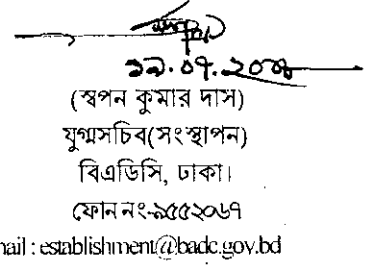 (স্বপন কুমার দাস)
যুগ্মসচিব(সংস্থাপন)
বিএডিসি, ঢাকা।
ফোন নং-৯৫৫২০৬৭
nail : establishment@badc.gov.bd